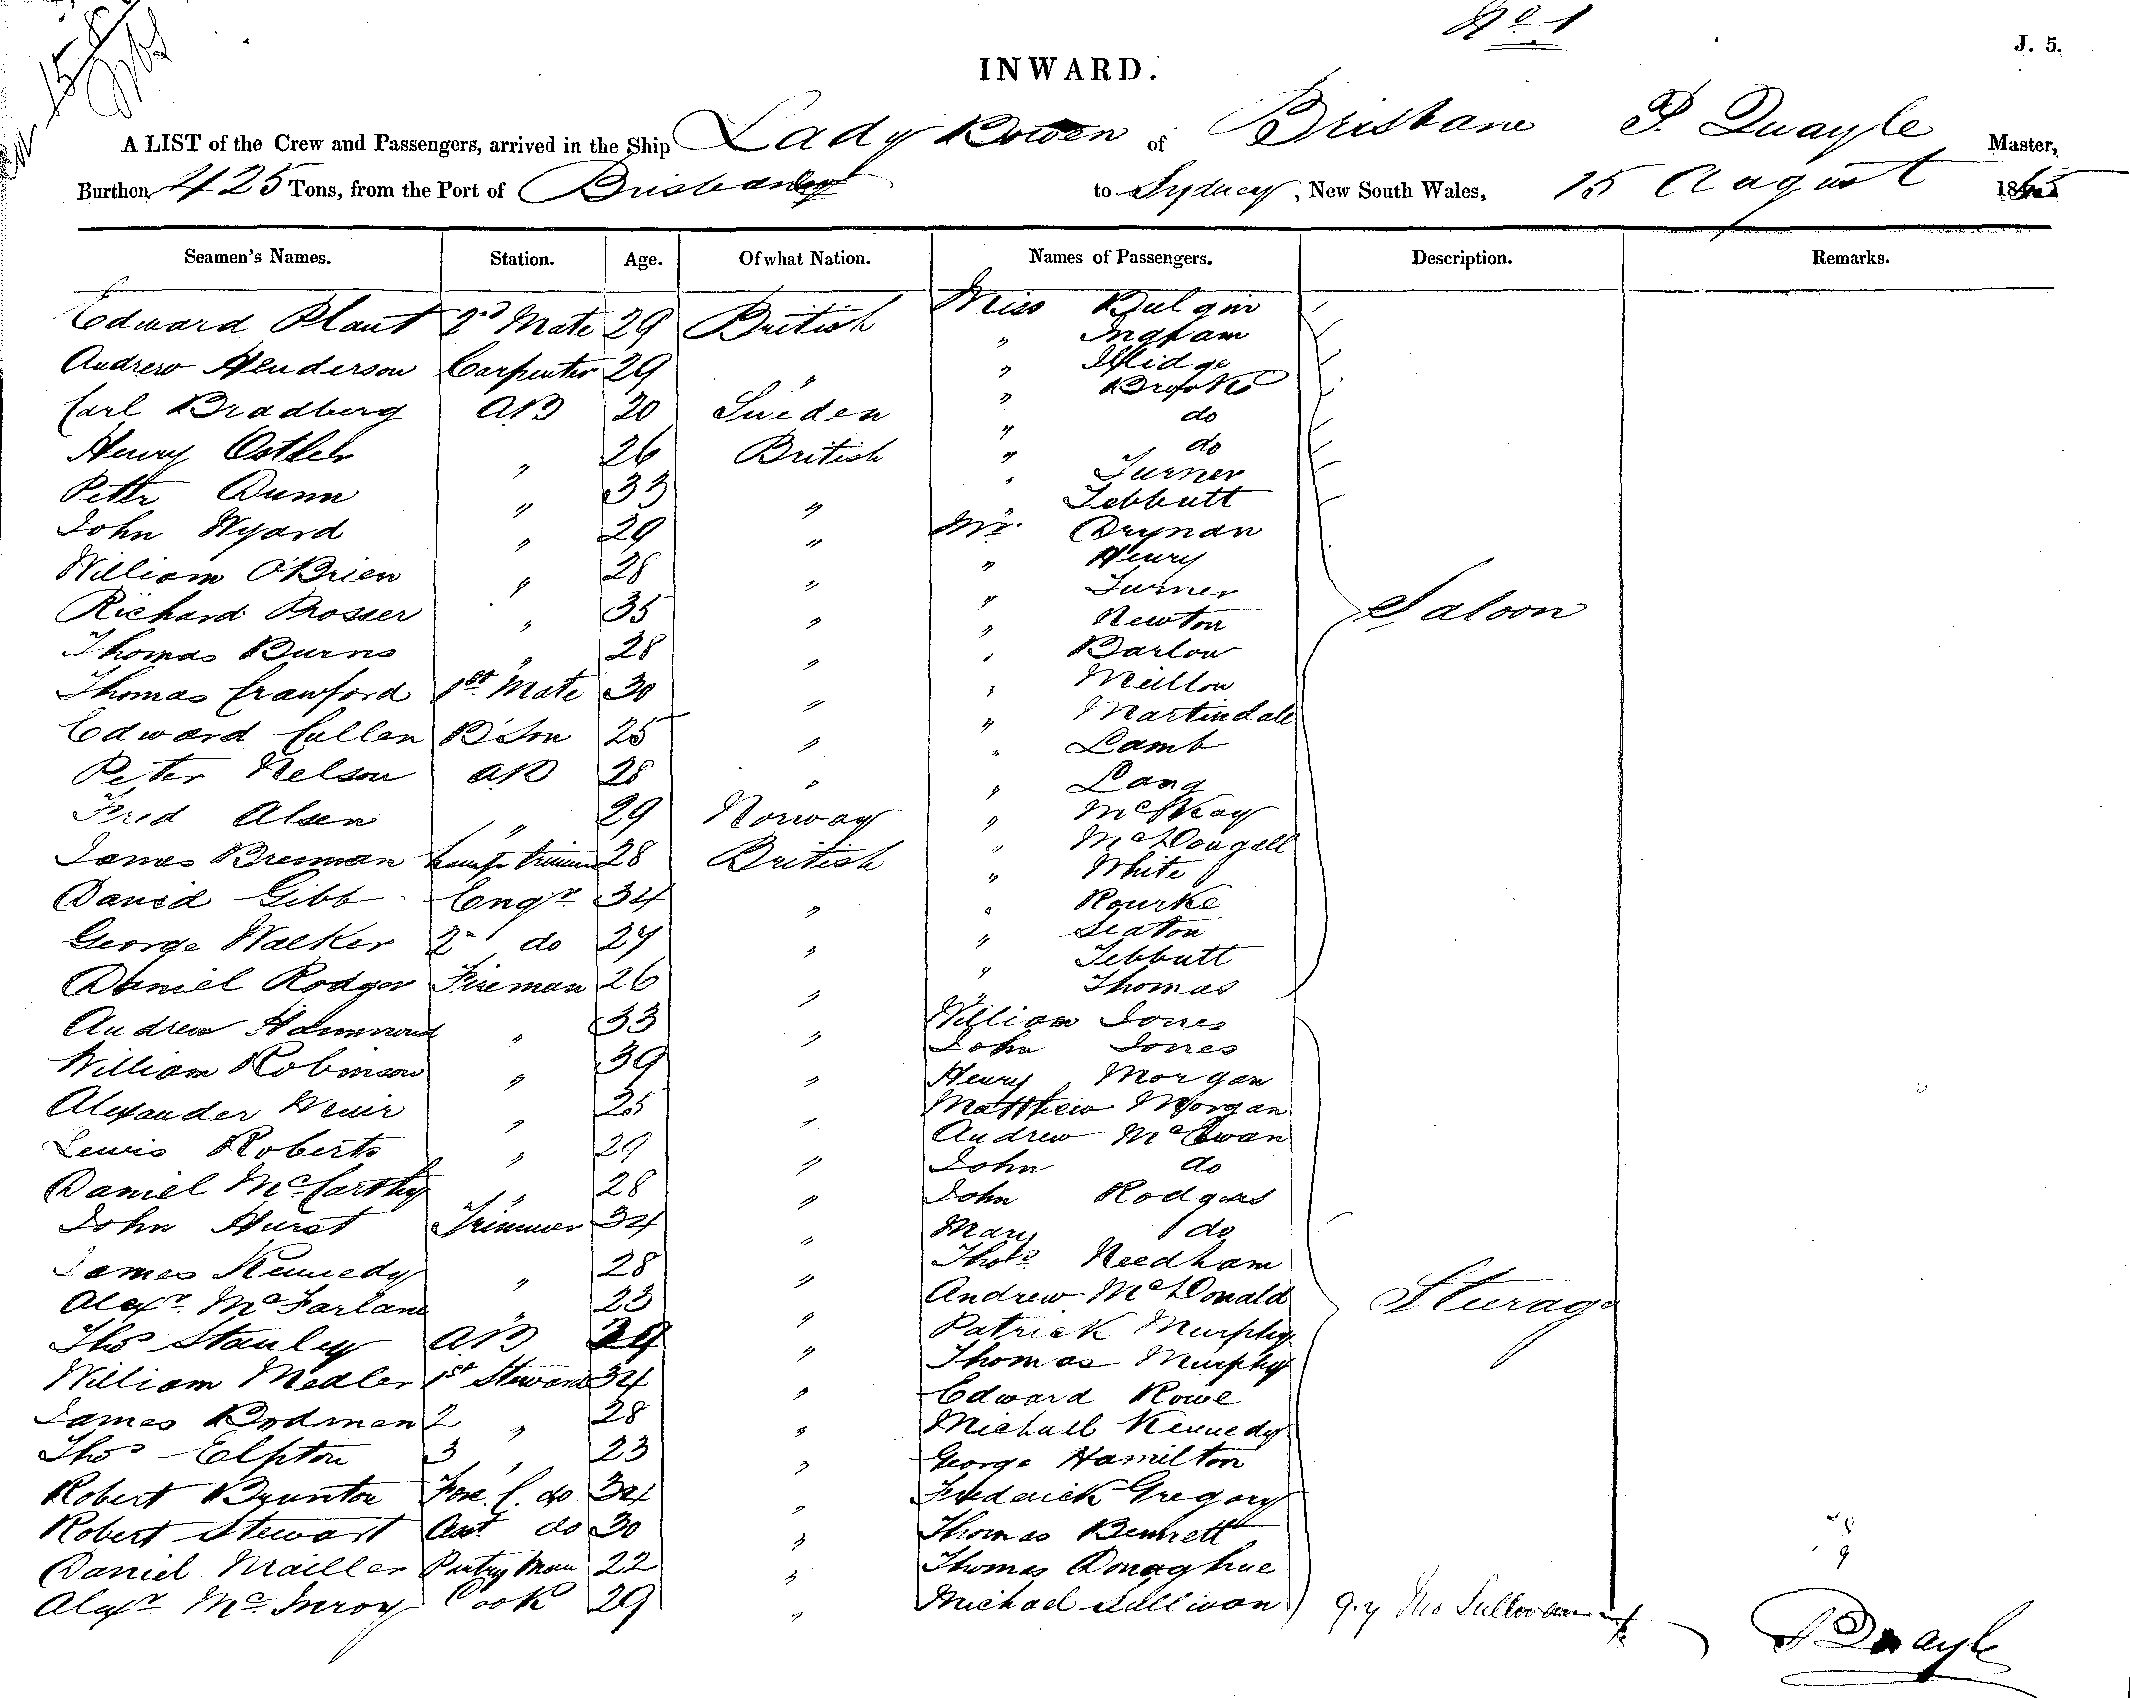 No 1
J. 5.
INWARD.
A LIST of the Crew and Passengers, arrived in the Ship Lady Bowen of Brisbane P. Quayle Master,
Burthen 425 Tons, from the Port of Brisbane to Sydney, New South Wales, 15 August 186
Seamen's Names. Station. Age. Of what Nation. Names of Passengers. Description. Remarks.
Edward Plant 2nd Mate 29 British Miss Bulgin
" Ingham
Andrew Henderson Carpenter 29 " " Illidge
" Brooke
Carl Bradberg AB 20 Sweden " do
Henry Ostler " 26 British " do
" Turner
Peter Dunn " 33 " " Tebbutt
John Wyard " 29 " Mr. Drynan
" Henry
William O'Brien " 28 " " Turner
Richard Prosser " 35 " " Newton
Saloon
Thomas Burns " 28 " " Barlow
Thomas Crawford 1st Mate 30 "
" Martindale
Edward Cullen B'Son 25 " " Lamb
Peter Nelson AB 28 " " Lang
Fred Alsen " 29 Norway " McKay
" McDougall
James Brennan 28 British " White
David Gibb Engr 34 " " Rourke
" Seaton
George Walker 2nd do 27 " " Tebbutt
Daniel Rodger Fireman 26 " " Thomas
Andrew Hammond " 33 " William Jones
John Jones
William Robinson " 39 " Henry Morgan
Alexander Muir " 25 " Matthew Morgan
Andrew McEwan
Lewis Roberts " 29 " John do
Daniel McCarthy " 28 " John Rodgers
John Hurst Trimmer 34 " Mary do
James Kennedy " 28 " Thos Needham
Alexr McFarlane " 23 " Andrew McDonald
Sturage
Thos Stanley AB 24 " Patrick Murphy
Thomas Murphy
William Medler 1st Steward 34 " Edward Rowe
James Bodman 2 " 28 " Michall Kennedy
Thos Elpton 3 " 23 " George Hamilton
Robert Brunton Fore C. do 34 " Frederick Gregory
Robert Stewart Asst do 30 " Thomas Bennett
Daniel Mailler Pantry Man 22 " Thomas Donaghue
Alexr McInroy Cook 29 " Michael Sullivan
P Quayle